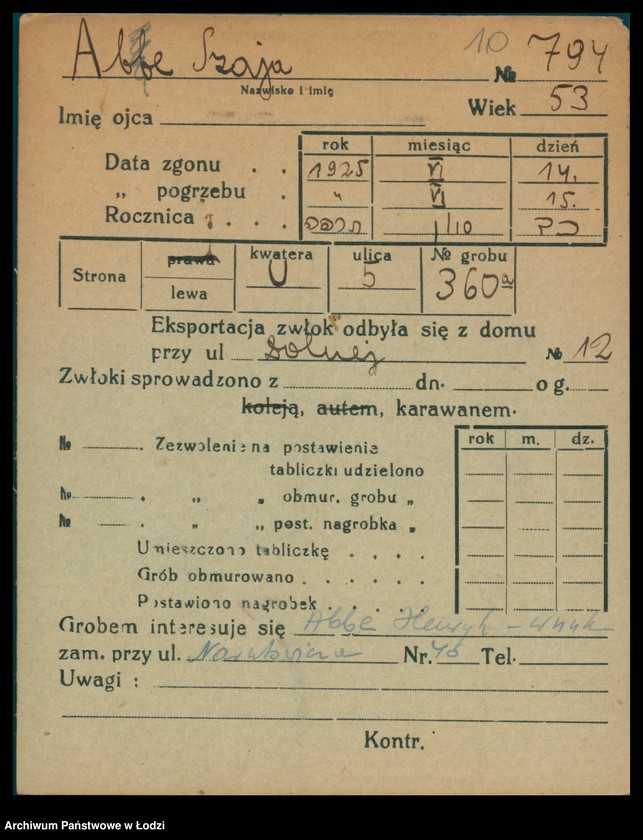 Abbe Szaja 10 № 794
Nazwisko i imię
Imię ojca Wiek 53
rok miesiąc dzień
Data zgonu . . 1925 VI 14.
„ pogrzebu . „ VI 15.
Rocznica . . .
Strona prawa kwatera ulica № grobu
lewa U 5 360a
Eksportacja zwłok odbyła się z domu
przy ul Solnej № 12
Zwłoki sprowadzono z dn. o g.
koleją, autem, karawanem.
№ . Zezwolenie na postawienie rok m. dz.
tabliczki udzielono
№ . „ „ obmur. grobu „
№ . „ „ post. nagrobka „
Umieszczono tabliczkę . . . .
Grób obmurowano . . . . . .
Postawiono nagrobek . . . . .
Grobem interesuje się Abbe Henryk – wnuk
zam. przy ul. Narutowicza Nr. Tel.
Uwagi :
Kontr.
Archiwum Państwowe w Łodzi